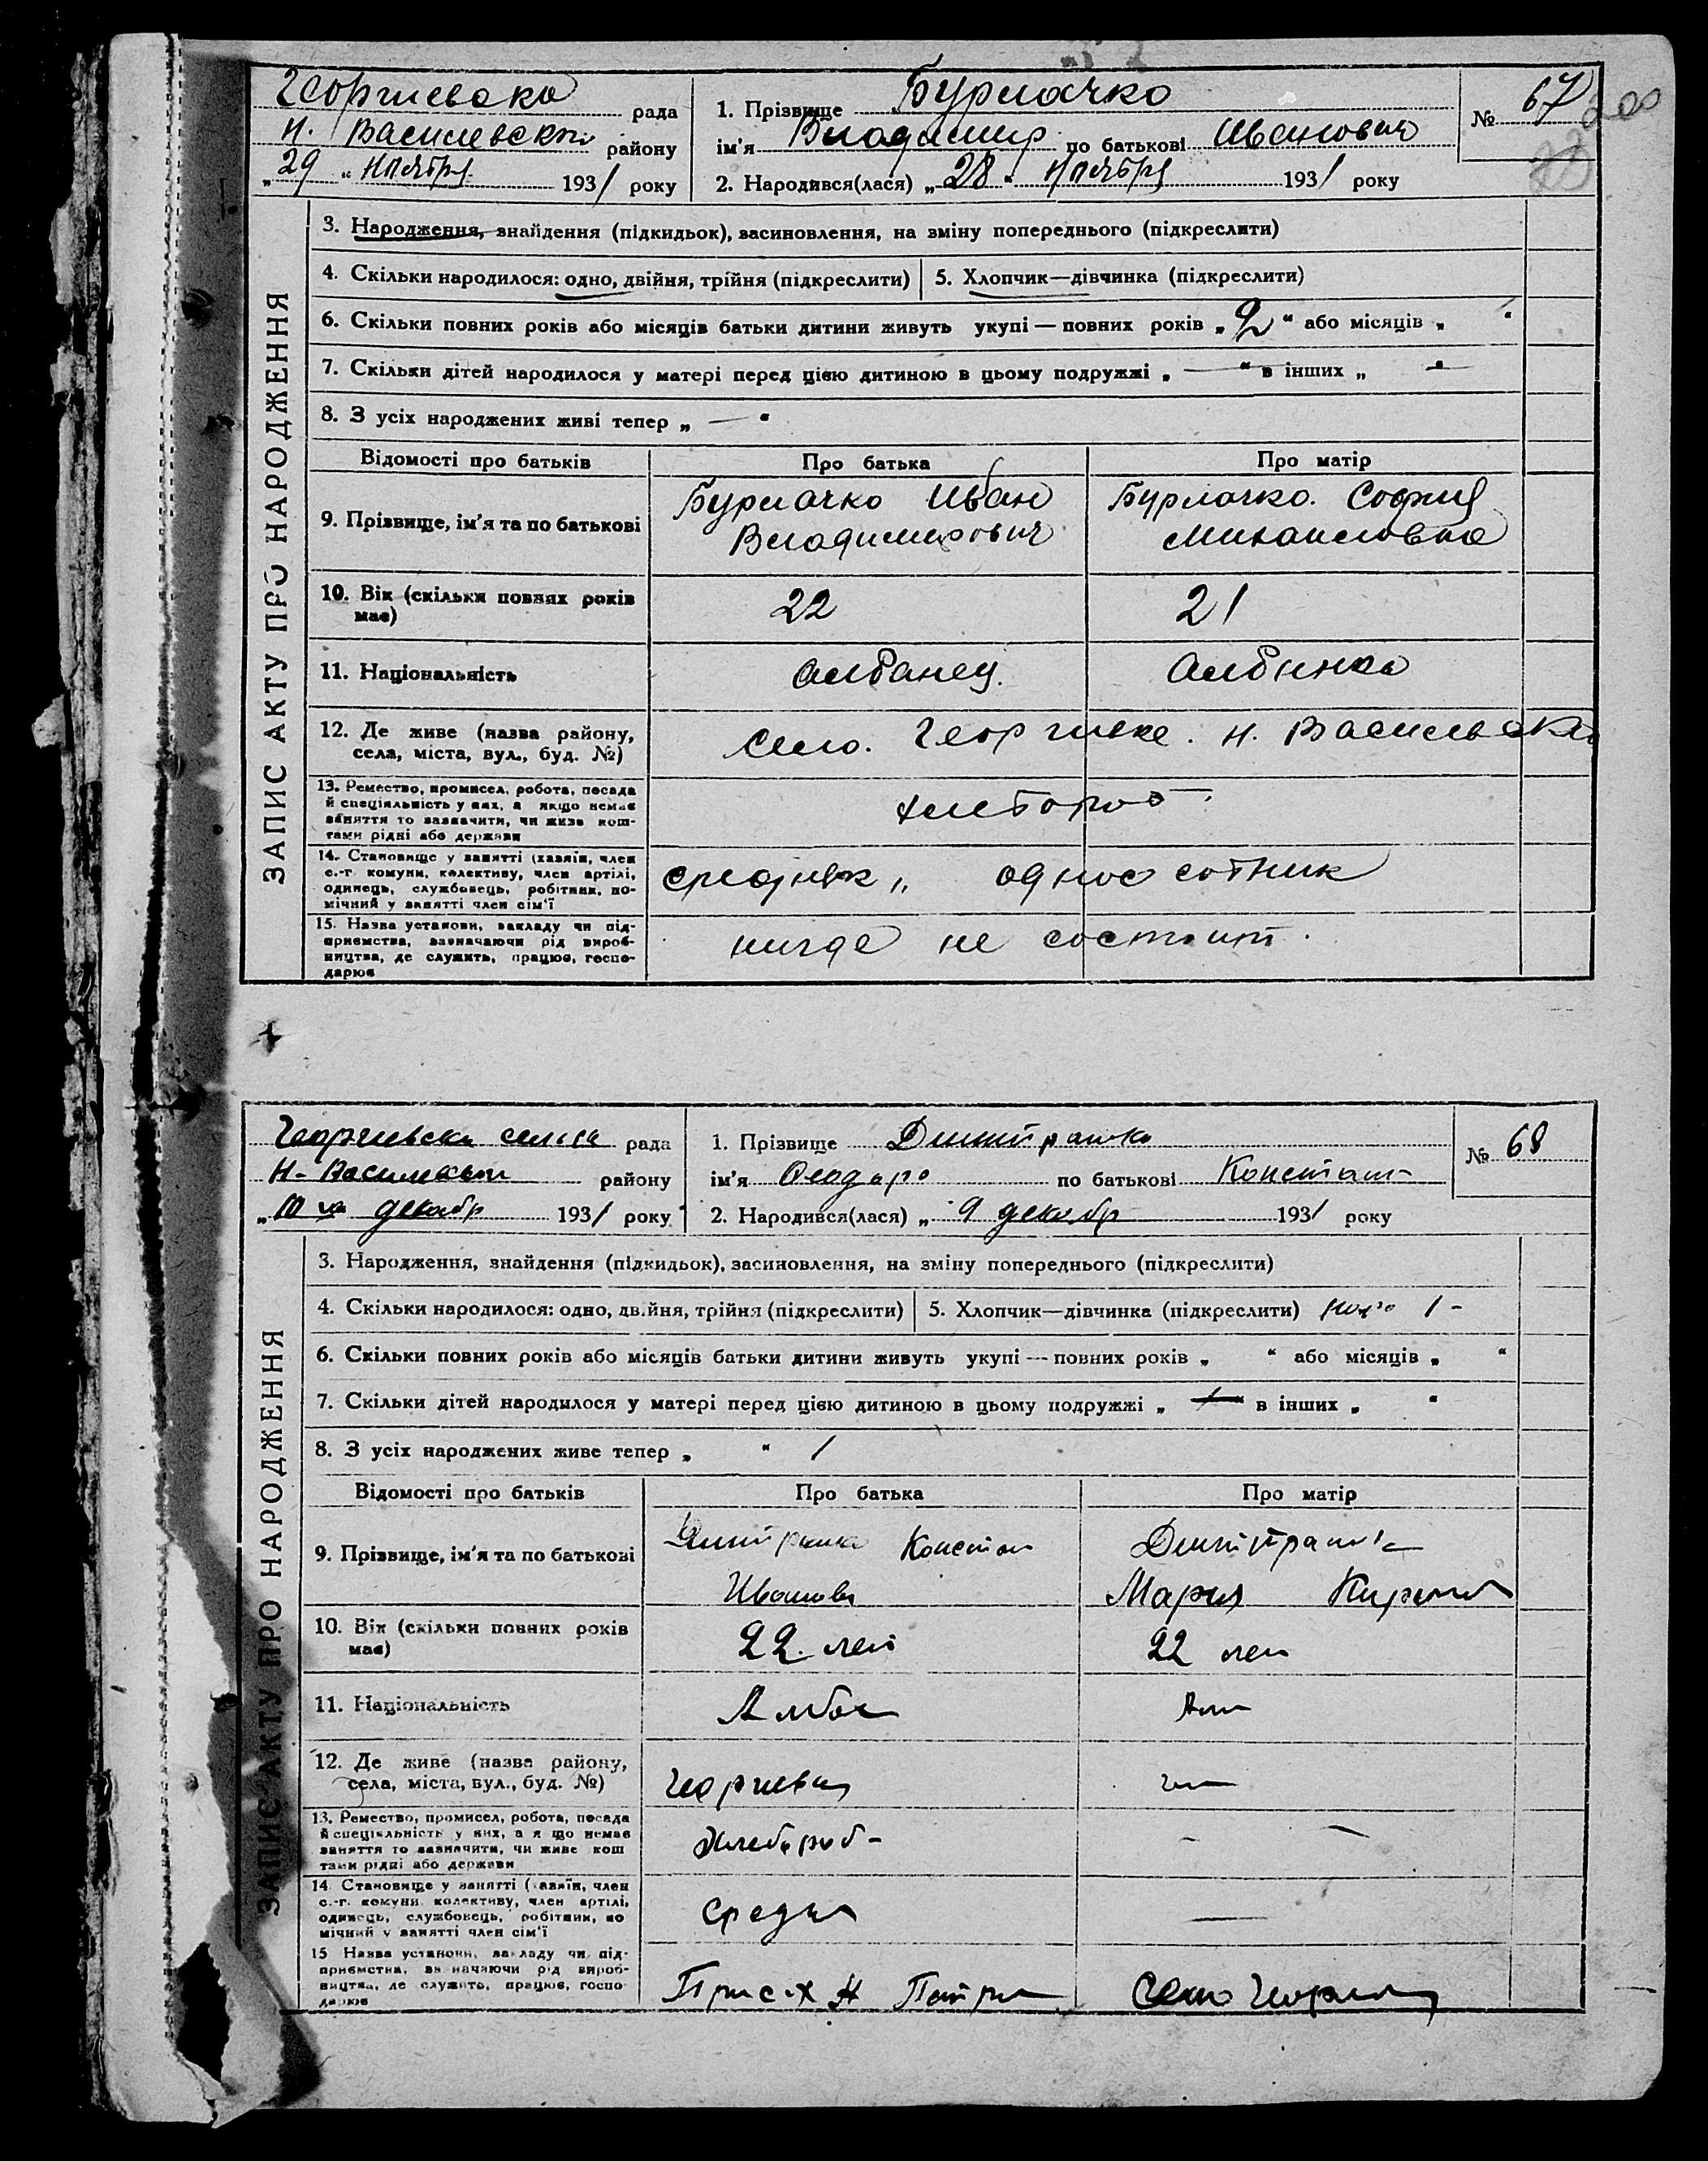 Георгиевска рада
Н. Василевского району
„29" Ноября 1931 року
1. Прізвище Бурлачко
ім'я Владимир по батькові Иванович
2. Народився(лася) „28" Ноября 1931 року
№ 67
ЗАПИС АКТУ ПРО НАРОДЖЕННЯ
3. Народження, знайдення (підкидьок), засиновлення, на зміну попереднього (підкреслити)
4. Скільки народилося: одно, двійня, трійня (підкреслити)
5. Хлопчик—дівчинка (підкреслити)
6. Скільки повних років або місяців батьки дитини живуть укупі — повних років „2" або місяців „ "
7. Скільки дітей народилося у матері перед цією дитиною в цьому подружжі „ — " в інших „ — "
8. З усіх народжених живі тепер „ — "
Відомості про батьків
Про батька
Про матір
9. Прізвище, ім'я та по батькові
Бурлачко Иван
Владимирович
Бурлачко. София
Михаиловна
10. Вік (скільки повних років
має)
22
21
11. Національність
Албанец.
Албинка
12. Де живе (назва району,
села, міста, вул., буд. №)
село. Георгиевке. Н. Василевска
13. Ремество, промисел, робота, посада
й спеціяльність у них, а якщо немає
заняття то зазначити, чи живе кош-
тами рідні або держави
хлебороб
14. Становище у занятті (хазяїн, член
с.-г комуни, колективу, член артілі,
одинець, службовець, робітник, по-
мічний у занятті член сім'ї
средняк „ одноосотник
15. Назва установи, закладу чи під-
приємства, зазначаючи рід вироб-
ництва, де служить, працює, госпо-
дарює
нигде не состоит.
Георгиевска сельск рада
Н-Василевском району
„10 декабр 1931 року
1. Прізвище Димитрашко
ім'я Феодора по батькові Констант-
2. Народився(лася) „9 декабр 1931 року
№ 68
ЗАПИС АКТУ ПРО НАРОДЖЕННЯ
3. Народження, знайдення (підкидьок), засиновлення, на зміну попереднього (підкреслити)
4. Скільки народилося: одно, двійня, трійня (підкреслити)
5. Хлопчик—дівчинка (підкреслити) 1-
6. Скільки повних років або місяців батьки дитини живуть укупі — повних років „ " або місяців „ "
7. Скільки дітей народилося у матері перед цією дитиною в цьому подружжі „ " в інших „ "
8. З усіх народжених живе тепер „ " 1
Відомості про батьків
Про батька
Про матір
9. Прізвище, ім'я та по батькові
Димитрашко Констан
Иванови
Димитраш
Мария Кирил
10. Вік (скільки повних років
має)
22 лет
22 лет
11. Національність
Албан
Алб
12. Де живе (назва району,
села, міста, вул., буд. №)
Георгиевка
13. Ремество, промисел, робота, посада
й спеціяльність у них, а якщо немає
заняття то зазначити, чи живе кош
тами рідні або держави
Хлебороб -
14. Становище у занятті (хазяїн, член
с.-г. комуни, колективу, член артілі,
одинець, службовець, робітник, по
мічний у занятті член сім'ї
Средн
15 Назва установи, закладу чи під-
приємства, зазначаючи рід вироб-
ництва, де служить, працює, госпо
дарює
село Георгиев